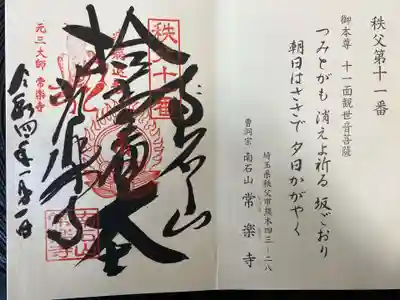 秩父第十一番
御本尊 十一面観世音菩薩
つみとがも 消えよ祈る 坂ごおり
朝日はささで 夕日かがやく
埼玉県秩父市熊木四三―二八
曹洞宗 南石山 常楽寺
秩父十一番
南石山
常楽寺
元三大師 常楽寺
令和四年一月一日